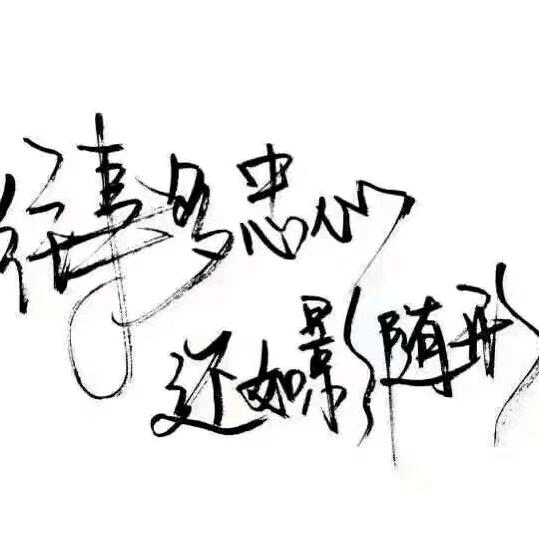 往事多忠心
还如影随形